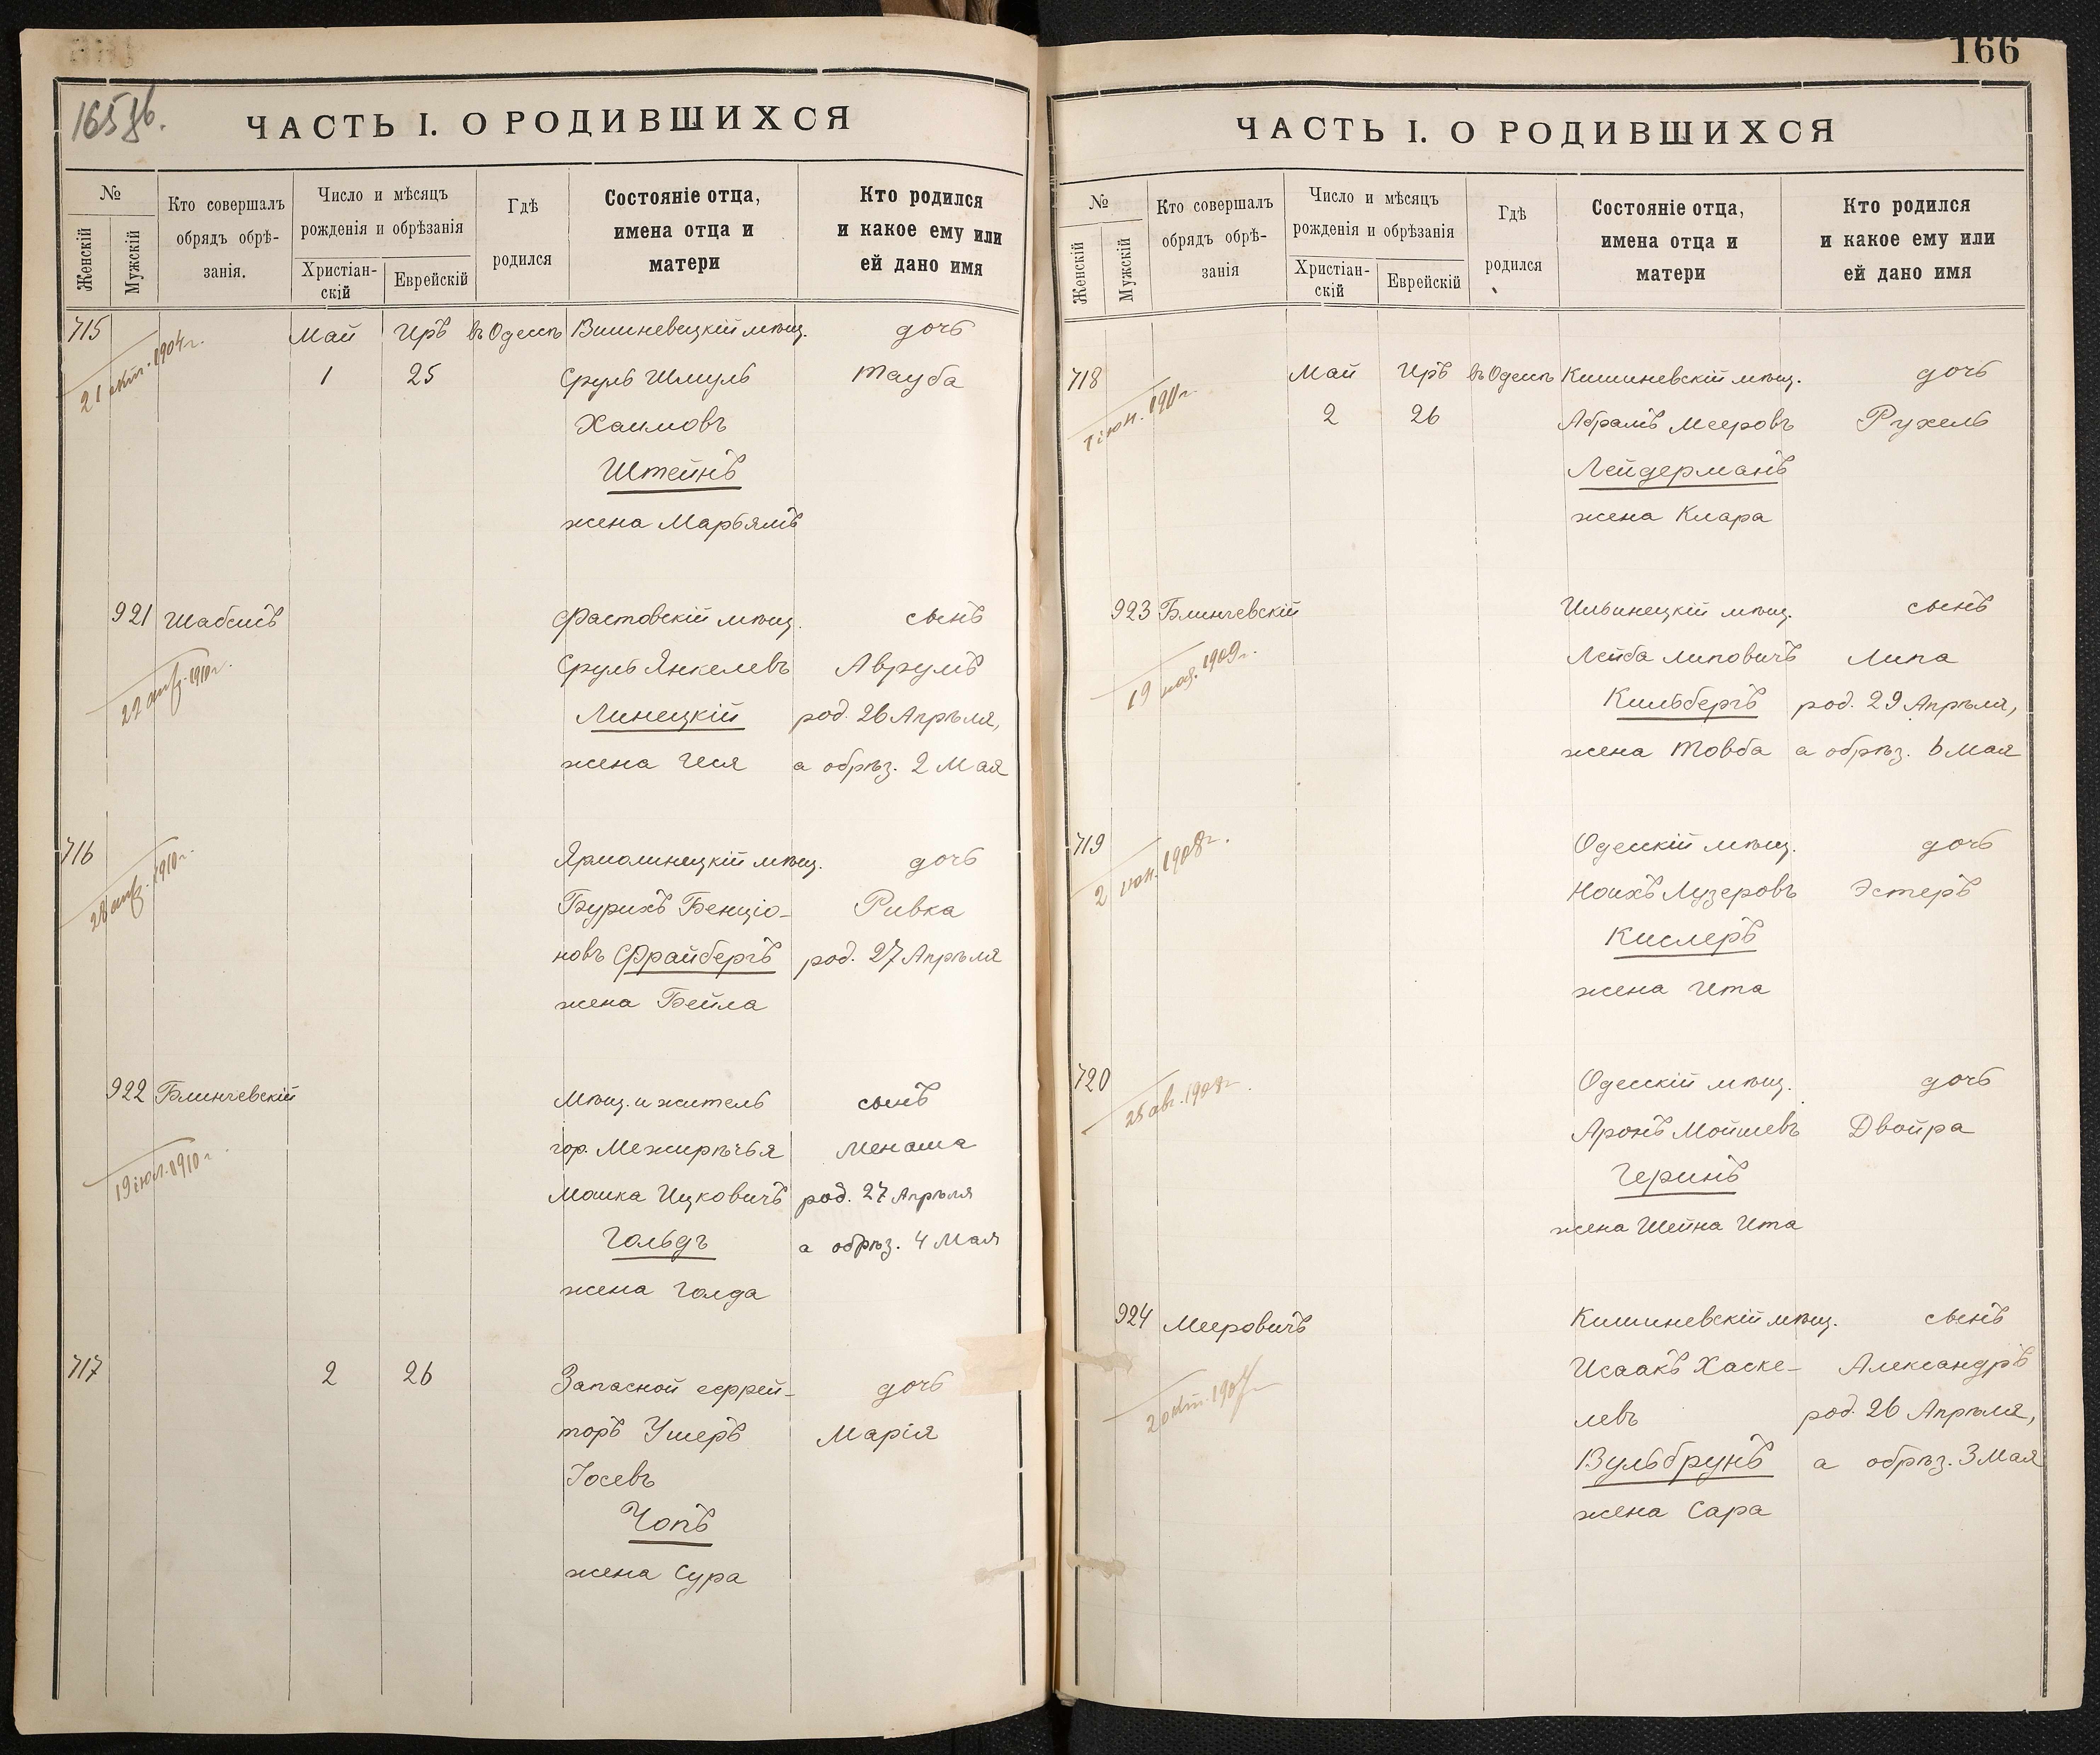 165 об.
ЧАСТЬ I. О РОДИВШИХСЯ
№
Женскій
Мужскій
Кто совершалъ
обрядъ обрѣ-
занія.
Число и мѣсяцъ
рожденія и обрѣзанія
Христіан-
скій
Еврейскій
Гдѣ
родился
Состояніе отца,
имена отца и
матери
Кто родился
и какое ему или
ей дано имя
715 Май Иръ въ Одессѣ Вишневецкій мѣщ. дочь
21 окт. 1904 г.
1 25 Сруль Шмуль Тауба
Хаимовъ
Штейнъ
жена Марьямъ
921 Шабсисъ Фастовскій мѣщ. сынъ
Сруль Янкелевъ Аврумъ
22 1910 г.
Линецкій род. 26 Апрѣля,
жена Чся а обрѣз. 2 Мая
716 Ярмолинецкій мѣщ. дочь
28 1910 г.
Бурихъ Бенціо- Ривка
новъ Фрайбергъ род. 27 Апрѣля
жена Бейла
922 Блинчевскій Мѣщ. и житель сынъ
гор. Межирѣчья Менаша
19 іюл. 1910 г.
Мошка Ицковичъ род. 27 Апрѣля
Гольдъ а обрѣз. 4 Мая
жена Голда
717 2 26 Запасной ефрей- дочь
торъ Ушеръ Марія
Іосевъ
Чопъ
жена Сура
166
ЧАСТЬ I. О РОДИВШИХСЯ
№
Женскій
Мужскій
Кто совершалъ
обрядъ обрѣ-
занія
Число и мѣсяцъ
рожденія и обрѣзанія
Христіан-
скій
Еврейскій
Гдѣ
родился
Состояніе отца,
имена отца и
матери
Кто родился
и какое ему или
ей дано имя
718 Май Иръ въ Одессѣ Кишиневскій мѣщ. дочь
2 26 Абрамъ Мееровъ Рухель
Лейдерманъ
жена Клара
923 Блинчевскій Ильинецкій мѣщ. сынъ
Лейба Липовичъ Липа
19 1909 г.
Кильбергъ род. 29 Апрѣля,
жена Товба а обрѣз. 6 Мая
719 Одесскій мѣщ. дочь
2 іюн. 1908 г.
Нохъ Лузеровъ Эстеръ
Кислеръ
жена Ита
720 Одесскій мѣщ. дочь
25 авг. 1908 г.
Аронъ Мойшевъ Двойра
Геринъ
жена Шейна Ита
924 Мееровичъ Кишиневскій мѣщ. сынъ
Исаакъ Хаске- Александръ
левъ род. 26 Апрѣля,
Вульбрунъ а обрѣз. 3 Мая
жена Сара